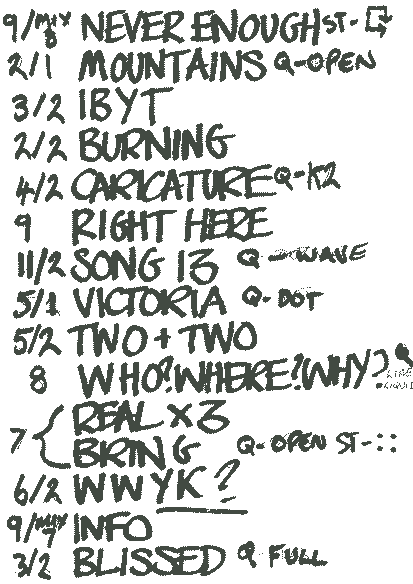 9/MIX 8 NEVER ENOUGH ST-
2/1 MOUNTAINS Q-OPEN
3/2 IBYT
2/2 BURNING
4/2 CARICATURE Q-K2
9 RIGHT HERE
11/2 SONG 13 Q-WAVE
5/1 VICTORIA Q-DOT
5/2 TWO + TWO
8 WHO? WHERE? (WHY)
7 { REAL X 3
BRING Q-OPEN ST-::
6/2 WWYK?
9/MIX 7 INFO
3/2 BLISSED Q FULL